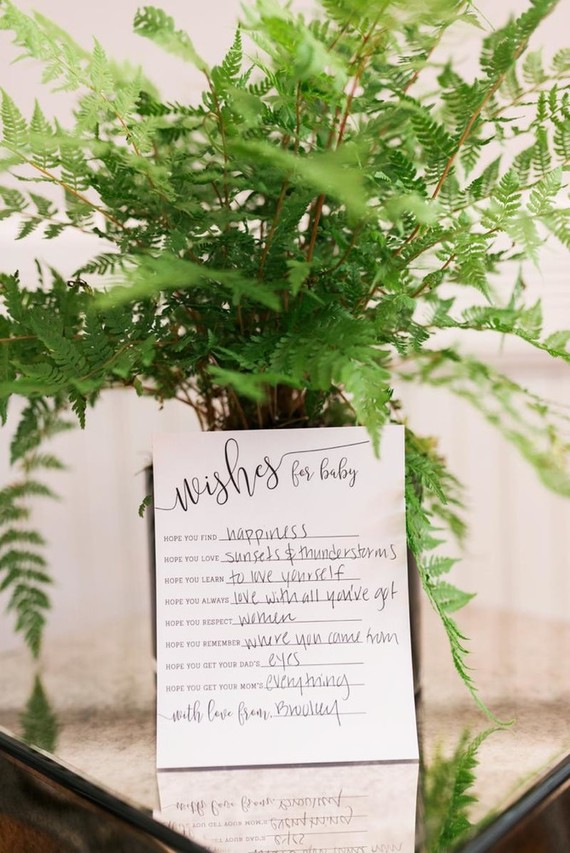 wishes for baby
HOPE YOU FIND happiness
HOPE YOU LOVE sunsets & thunderstorms
HOPE YOU LEARN to love yourself
HOPE YOU ALWAYS love with all you've got
HOPE YOU RESPECT women
HOPE YOU REMEMBER where you came from
HOPE YOU GET YOUR DAD'S eyes
HOPE YOU GET YOUR MOM'S everything
with love from, Brooley